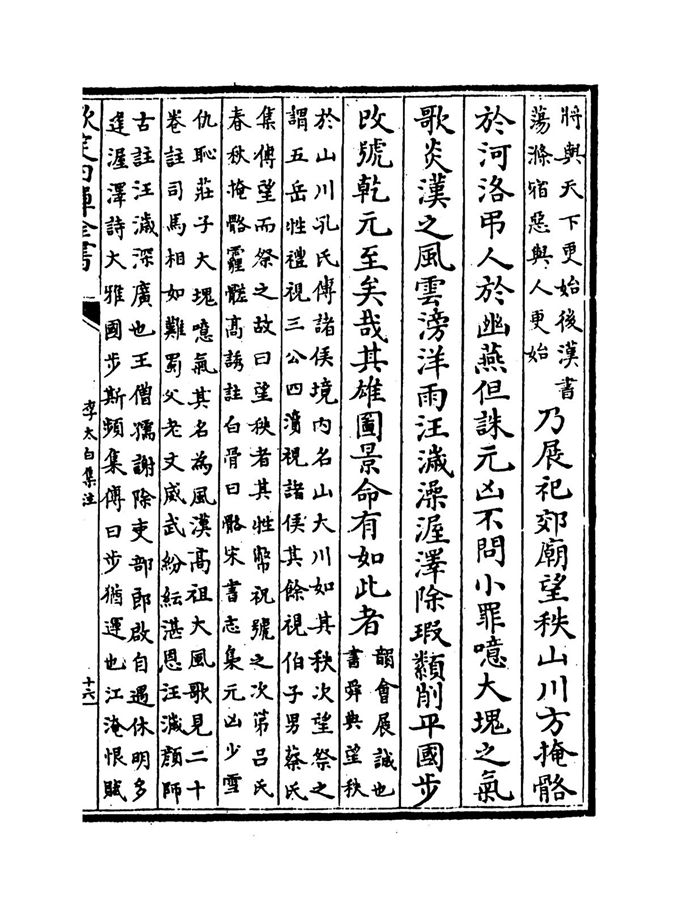 將與天下更始後漢書
蕩滌宿惡與人更始
乃展祀郊廟望秩山川方掩骼
於河洛弔人於幽燕但誅元凶不問小罪噫大塊之氣
歌炎漢之風雲滂洋雨汪濊澡渥澤除瑕纇削平國步
改號乾元至矣哉其雄圖景命有如此者
韻會展誠也
書舜典望秩
於山川孔氏傳諸侯境内名山大川如其秩次望祭之
謂五岳牲禮視三公四瀆視諸侯其餘視伯子男蔡氏
集傳望而祭之故曰望秩者其牲幣祝號之次第吕氏
春秋掩骼霾髊高誘註白骨曰骼宋書志梟元凶少雪
仇恥莊子大塊噫氣其名為風漢高祖大風歌見二十
卷註司馬相如難蜀父老文威武紛紜湛恩汪濊顔師
古註汪濊深廣也王僧孺謝除吏部郎啟自遇休明多
逢渥澤詩大雅國步斯頻集傳曰步猶運也江淹恨賦
欽定四庫全書
李太白集注
十六